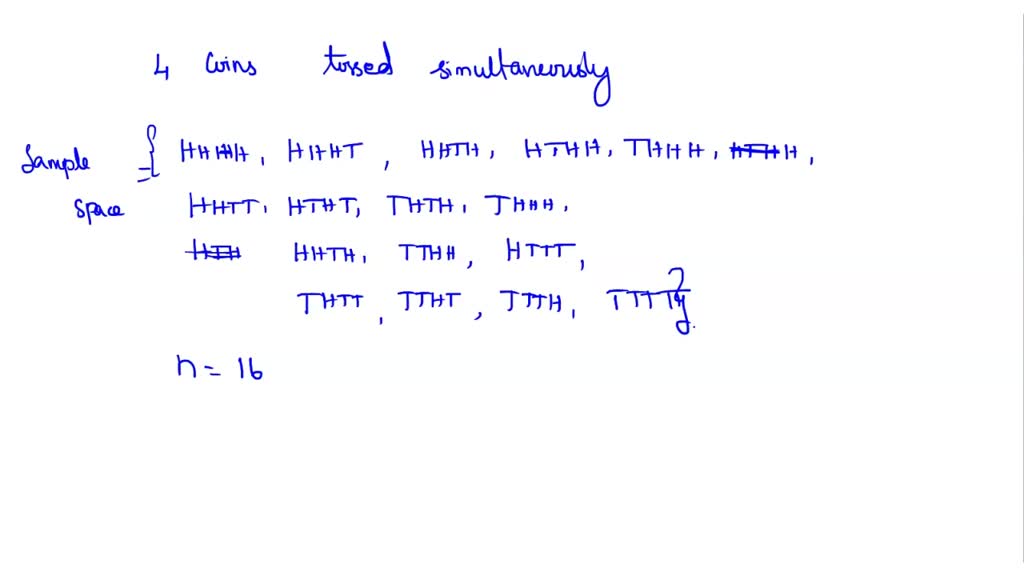 4 coins tossed simultaneously
Sample = { HHHH, HHHT, HHTH, HTHH, THHH,
Space HHTT, HTHT, THTH, THHH,
HHTH, TTHH, HTTT,
THTT, TTHT, TTTH, TTTT}
n = 16